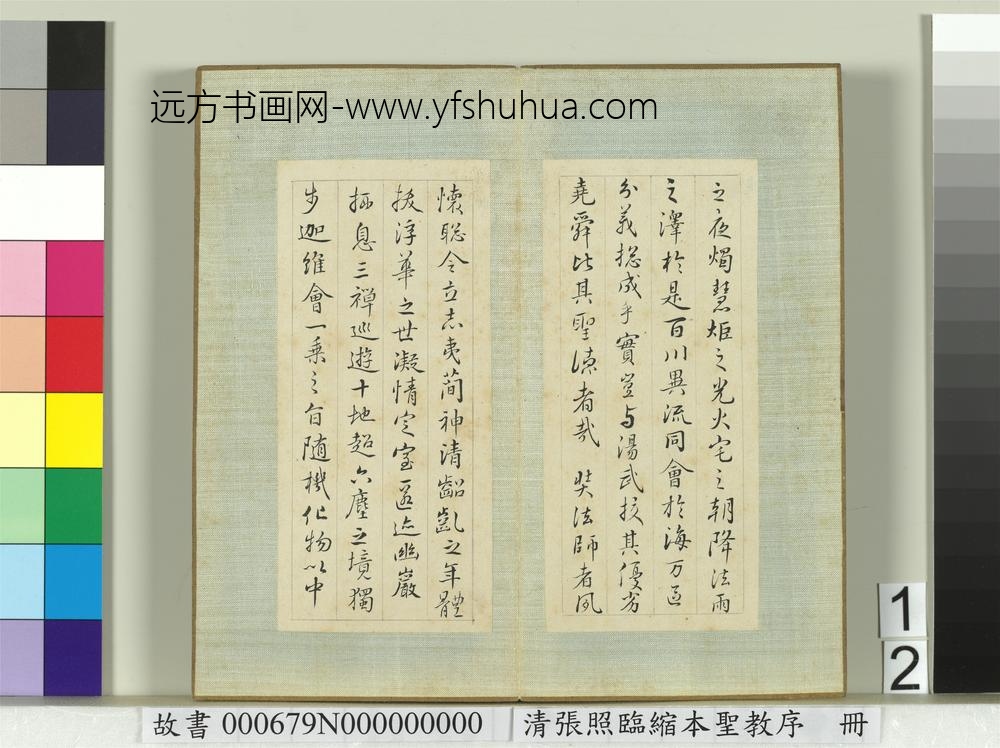 远方书画网-www.yfshuhua.com
之夜燭慧炬之光火宅之朝降法雨
之澤於是百川異流同會於海万區
分義揔成乎實豈与湯武挍其優劣
堯舜比其聖德者哉 奘法師者夙
懷聡令立志夷蕳神清齠齓之年體
拔浮華之世凝情定室匿迹幽巖
栖息三禪巡遊十地超六塵之境獨
步迦維會一乗之旨随機化物以中
1
2
故書 000679N000000000 清張照臨縮本聖教序 冊